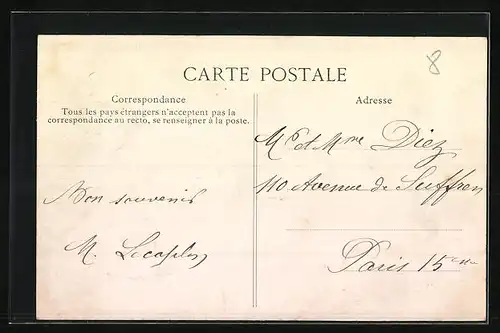 8
CARTE POSTALE
Correspondance
Tous les pays étrangers n'acceptent pas la
correspondance au recto, se renseigner à la poste.
Bon souvenir
M.
Adresse
Mr et Mme Diez
110 Avenue de Suffren
Paris 15e